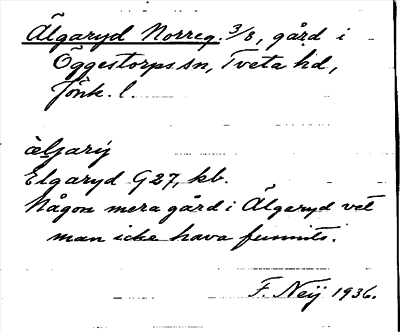 Älgaryd Norreg. 3/8, gård i
Öggestorps sn, Tveta hd,
Jönk. l.
æljarij
Elgaryd G27, kb.
Någon mera gård i Älgaryd vet
man icke hava funnits.
F. Neij 1936.